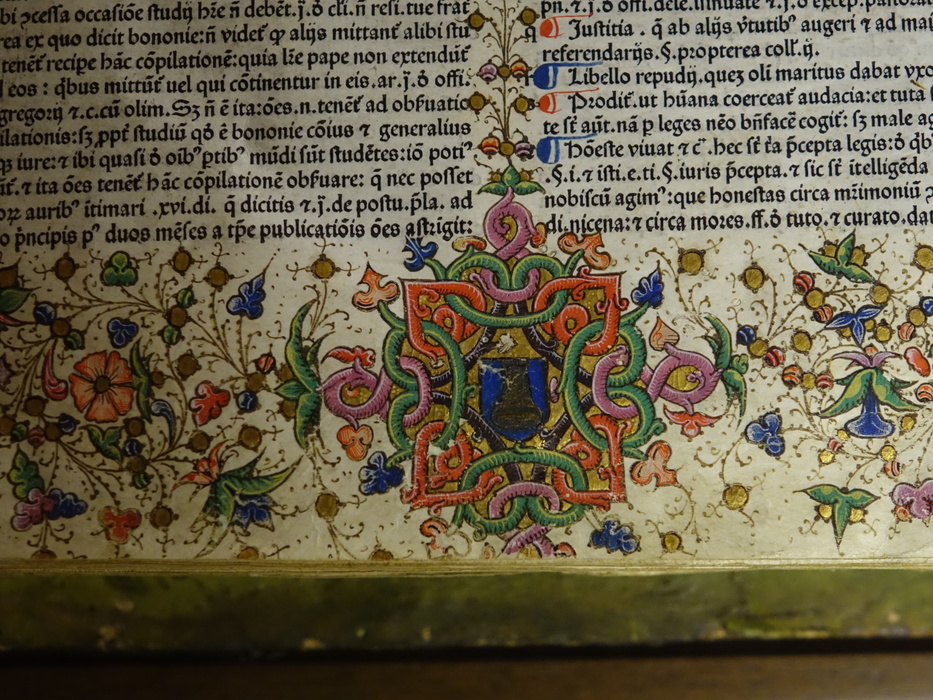 occasiõe studij hr̃e ñ debẽt.j.ð cli. ñ resi.tue frat
rea ex quo dicit bononie:ñ videt̃ ꝙ alijs mittant̃ alibi stu
tenẽt recipe hãc cõpilationẽ:quia lr̃e pape non extendũt̃
eos : q̃bus mittũt̃ uel qui cõtinentur in eis.ar.j.ð offi.
gregorij ⁊.c.cũ olim. Sꝫ ñ ẽ ita:oẽs.n.tenẽt̃ ad obseruatio
ilationis:sꝫ ꝓpt̃ studiũ qð ẽ bononie cõius ⁊ generalius
iure:⁊ ibi quasi ð oĩbꝰ ptibꝰ mũdi sũt studẽtes:iõ potiꝰ
⁊ ita ões tenẽt̃ hãc cõpilationẽ obseruare: q̃ nec posset
auribꝰ ĩtimari .xvi.di. q̃ dicitis ⁊.j.de postu.p̃la. ad
p̃ncipis pꝰ duos mẽses a tp̃e publicatiõis ões astrigit:
pñ.⁊.j.ð offi.dele.insinuate ⁊.j.ð excep.pastoral
Justitia . q̃ ab alijs v̉tutibꝰ augeri ⁊ ad mai
referendarijs.§.propterea coll.ij.
Libello repudij.queꝫ olĩ maritus dabat vxo
Prodit̃.ut hũana coerceat̃ audacia:et tuta s
te sĩt aũt.nã p leges nẽo bñfacẽ cogit̃: sꝫ male ag
Hõeste viuat ⁊ c̃ .hec sĩt t̃a p̃cepta legis:ð
.§.i.⁊ isti.e.ti.§.iuris p̃cepta.⁊ sic sĩt ĩtelligẽda
nobiscũ agimꝰ:que honestas circa mr̃imoniũ
di.nicena:⁊ circa mores.ff.ð tuto.⁊ curato.dat